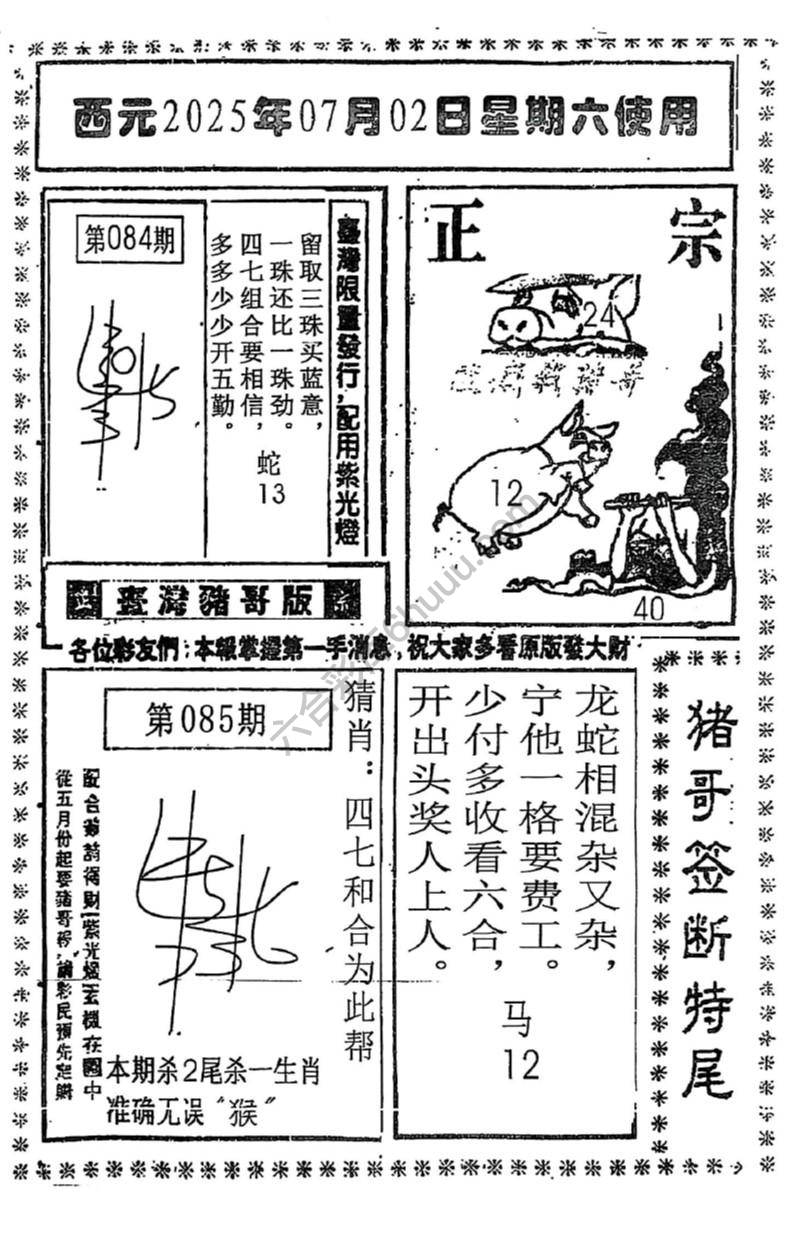 西元2025年07月02日星期六使用
臺灣限量發行，配用紫光燈
留取三珠买蓝意，
一珠还比一珠劲。
四七组合要相信，
多多少少开五勤。
蛇
13
第084期
正宗
24
12
40
臺灣豬哥版
各位彩友們：本報掌握第一手消息，祝大家多看原版發大財
猜肖：四七和合为此帮
第085期
配合 請得財 紫光燈 玄機在圖中
從五月份起要豬哥報，請彩民預先定購
本期杀2尾杀一生肖
准确无误“猴”
龙蛇相混杂又杂，
宁他一格要费工。
少付多收看六合，
开出头奖人上人。
马
12
猪哥签断特尾
六合彩库6huuu.com